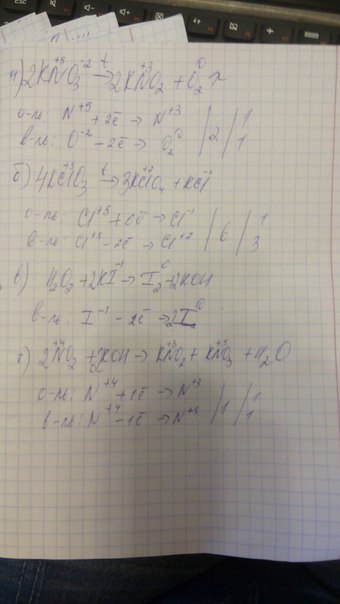 а) 2KN⁺⁵O₃⁻² →ᵗ 2KN⁺³O₂ + O₂⁰ ↑
о-ль: N⁺⁵ + 2ē → N⁺³ | 2 | 1
в-ль: O⁻² - 2ē → O₂⁰ | 1
б) 4KCl⁺⁵O₃ →ᵗ 3KClO₄ + KCl⁻¹
о-ль: Cl⁺⁵ + 6ē → Cl⁻¹ | 6 | 1
в-ль: Cl⁺⁵ - 2ē → Cl⁺⁷ | 3
в) H₂O₂ + 2KI⁻¹ → I₂⁰ + 2KOH
в-ль: I⁻¹ - 2ē → 2I⁰
г) 2N⁺⁴O₂ + 2KOH → KN⁺³O₂ + KN⁺⁵O₃ + H₂O
о-ль: N⁺⁴ + 1ē → N⁺³ | 1 | 1
в-ль: N⁺⁴ - 1ē → N⁺⁵ | 1